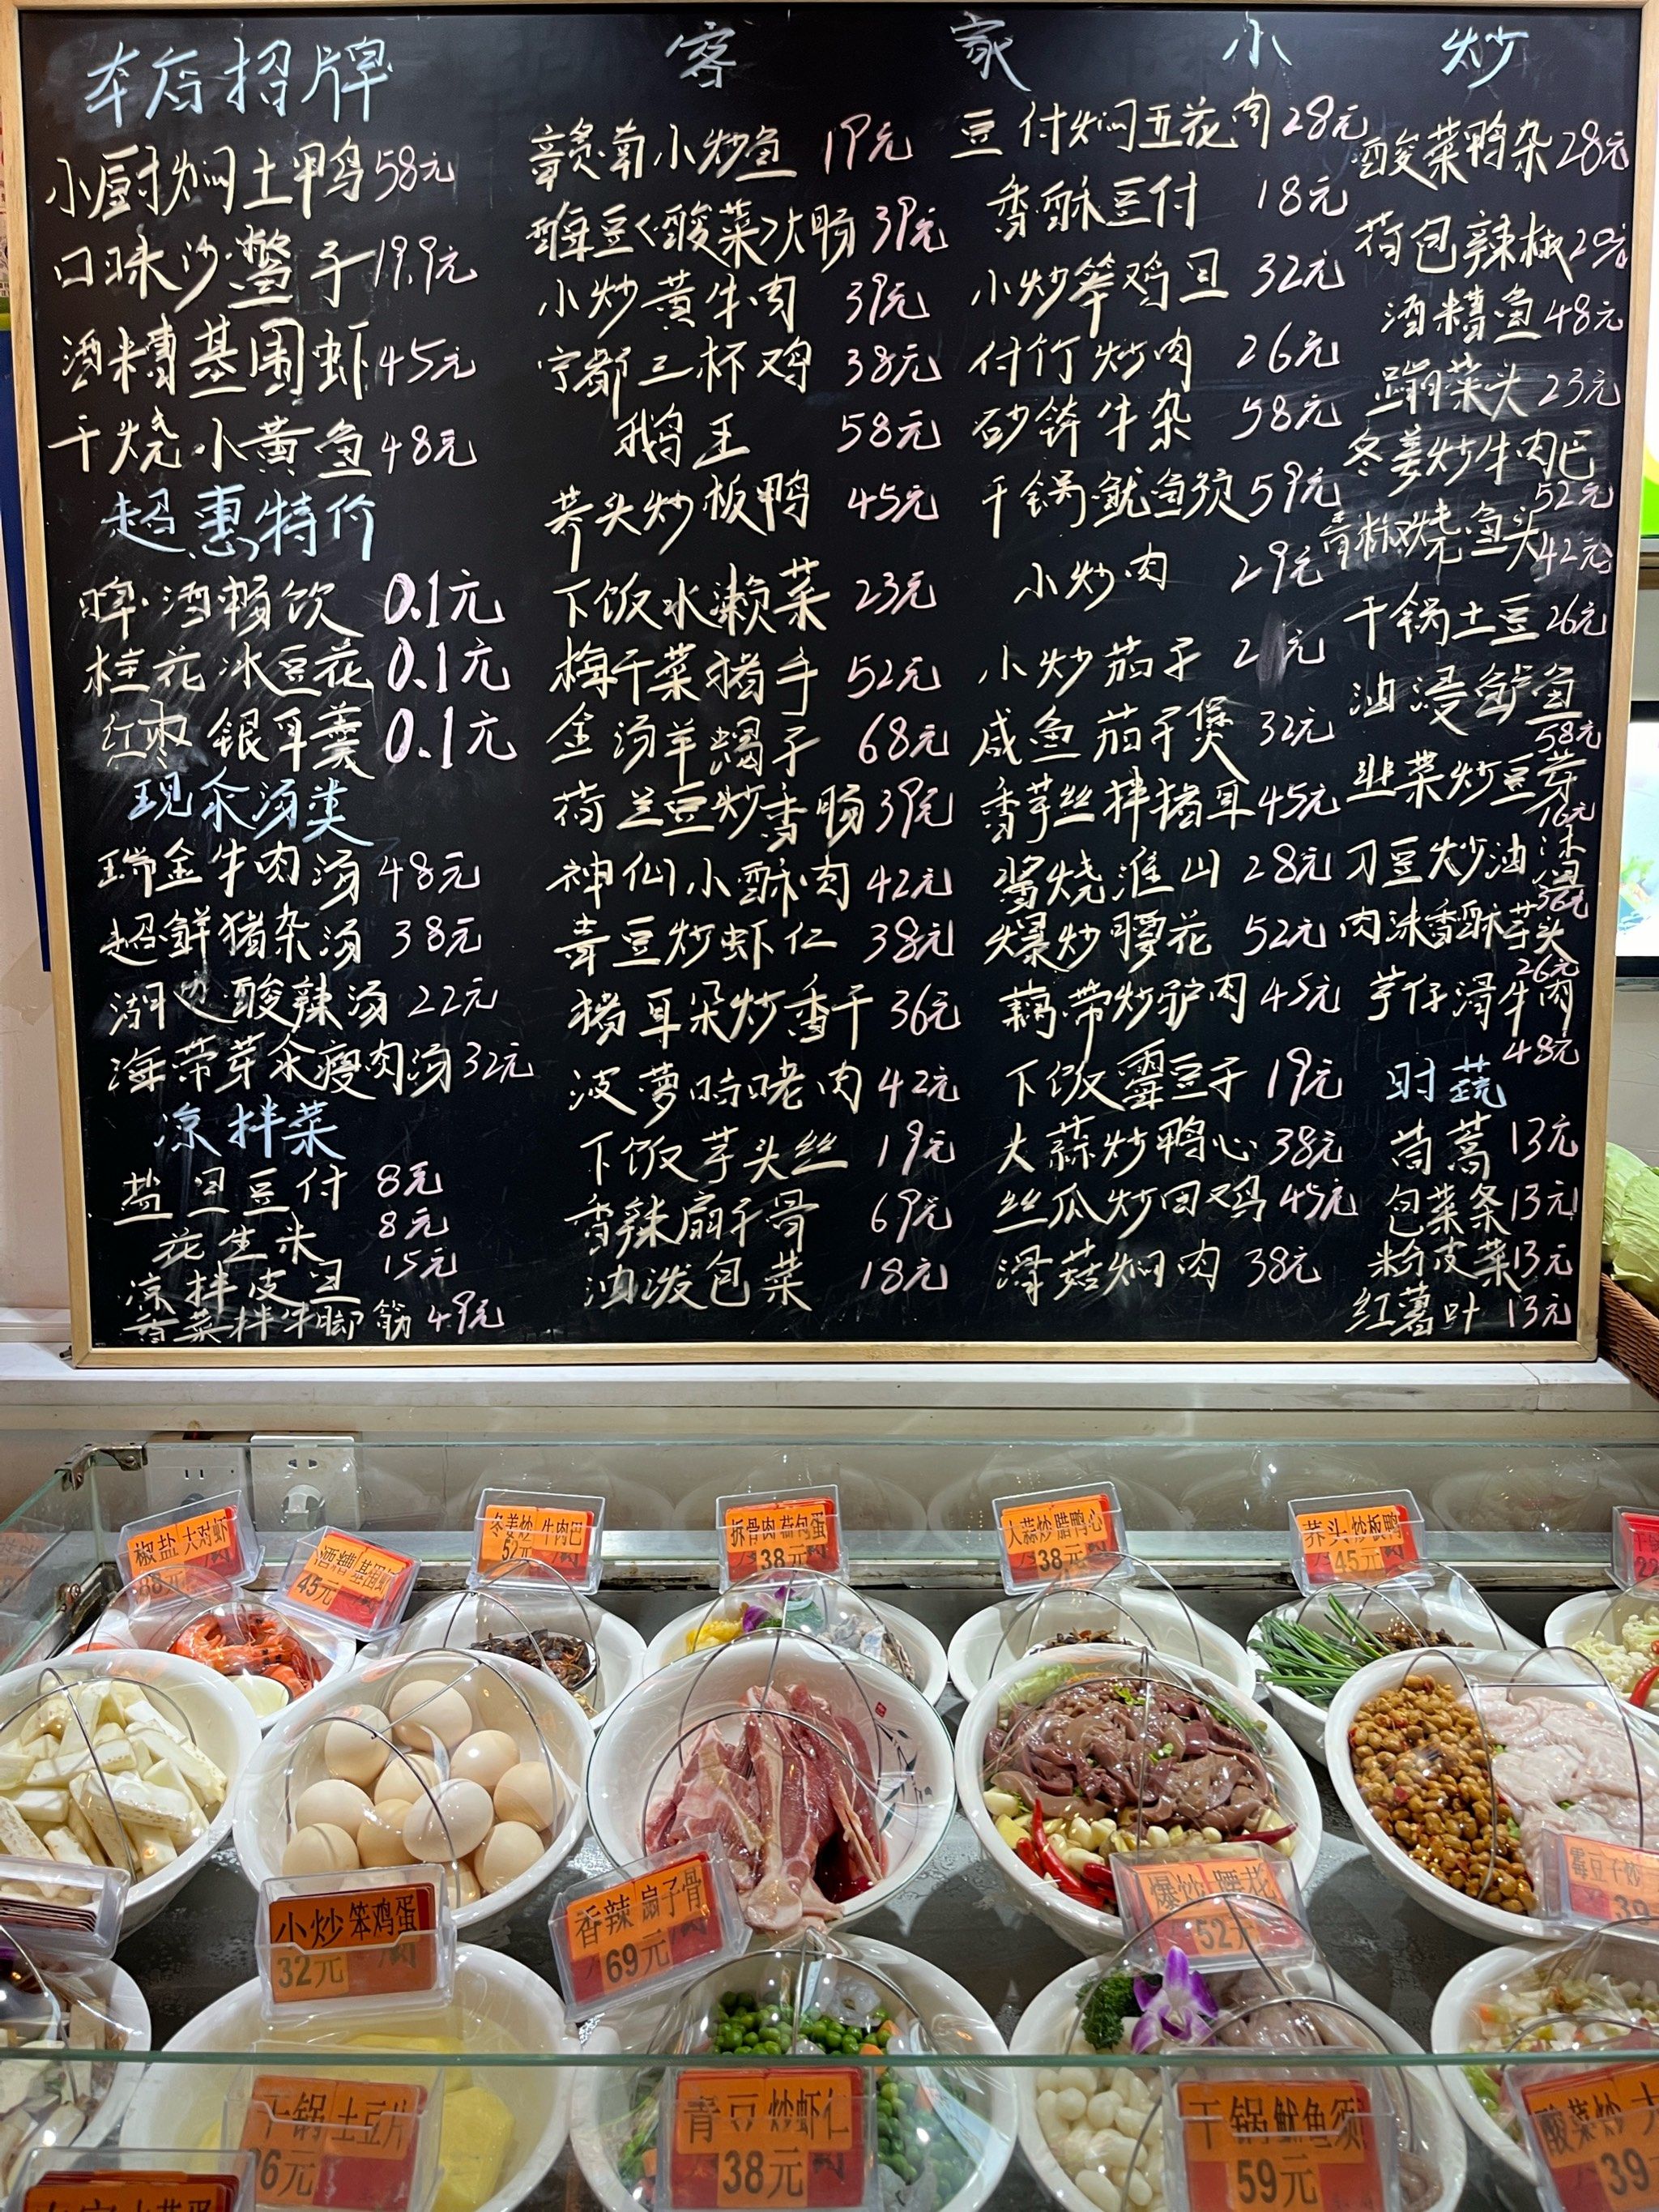 本店招牌
小厨焖土鸭 58元
口味沙鳖子 19.9元
酒糟基围虾 45元
干烧小黄鱼 48元
超惠特价
啤酒畅饮 0.1元
桂花冰豆花 0.1元
红枣银耳羹 0.1元
现汆汤类
瑞金牛肉汤 48元
超鲜猪杂汤 38元
湖边酸辣汤 22元
海带芽汆瘦肉汤 32元
凉拌菜
盐旦豆付 8元
花生米 8元
凉拌皮旦 15元
香菜拌牛脚筋 49元
客家小炒
赣南小炒鱼 19元
霉豆<酸菜>大肠 39元
小炒黄牛肉 39元
宁都三杯鸡 38元
鹅王 58元
荞头炒板鸭 45元
下饭水濑菜 23元
梅干菜猪手 52元
金汤羊蝎子 68元
荷兰豆炒香肠 39元
神仙小酥肉 42元
青豆炒虾仁 38元
猪耳朵炒香干 36元
波萝咕咾肉 42元
下饭芋头丝 19元
香辣扇子骨 69元
油泼包菜 18元
豆付焖五花肉 28元
香酥豆付 18元
小炒笨鸡旦 32元
付竹炒肉 26元
砂钵牛杂 58元
干锅鱿鱼须 59元
小炒肉 29元
小炒茄子 21元
咸鱼茄子煲 32元
香芋丝拌猪耳 45元
酱烧淮山 28元
爆炒腰花 52元
藕带炒驴肉 45元
下饭霉豆子 19元
大蒜炒鸭心 38元
丝瓜炒田鸡 45元
滑菇焖肉 38元
酸菜鸭杂 28元
荷包辣椒 20元
酒糟鱼 48元
蹦菜头 23元
冬姜炒牛肉巴
52元
青椒烧鱼头 42元
干锅土豆 26元
油浸鲈鱼
58元
韭菜炒豆芽
16元
刀豆炒油渣
36元
肉沫香酥芋头
26元
芋仔滑牛肉
48元
时蔬
茼蒿 13元
包菜条 13元
粉皮菜 13元
红薯叶 13元
椒盐 大对虾
88元
酒糟 基围虾
45元
冬姜炒 牛肉巴
52元
拆骨肉 荷包蛋
38元
大蒜炒 腊鸭心
38元
荞头 炒板鸭
45元
小炒 笨鸡蛋
32元
香辣 扇子骨
69元
爆炒 腰花
52元
霉豆子炒
39
干锅 土豆片
26元
青豆 炒虾仁
38元
干锅 鱿鱼须
59元
酸菜炒 大
39